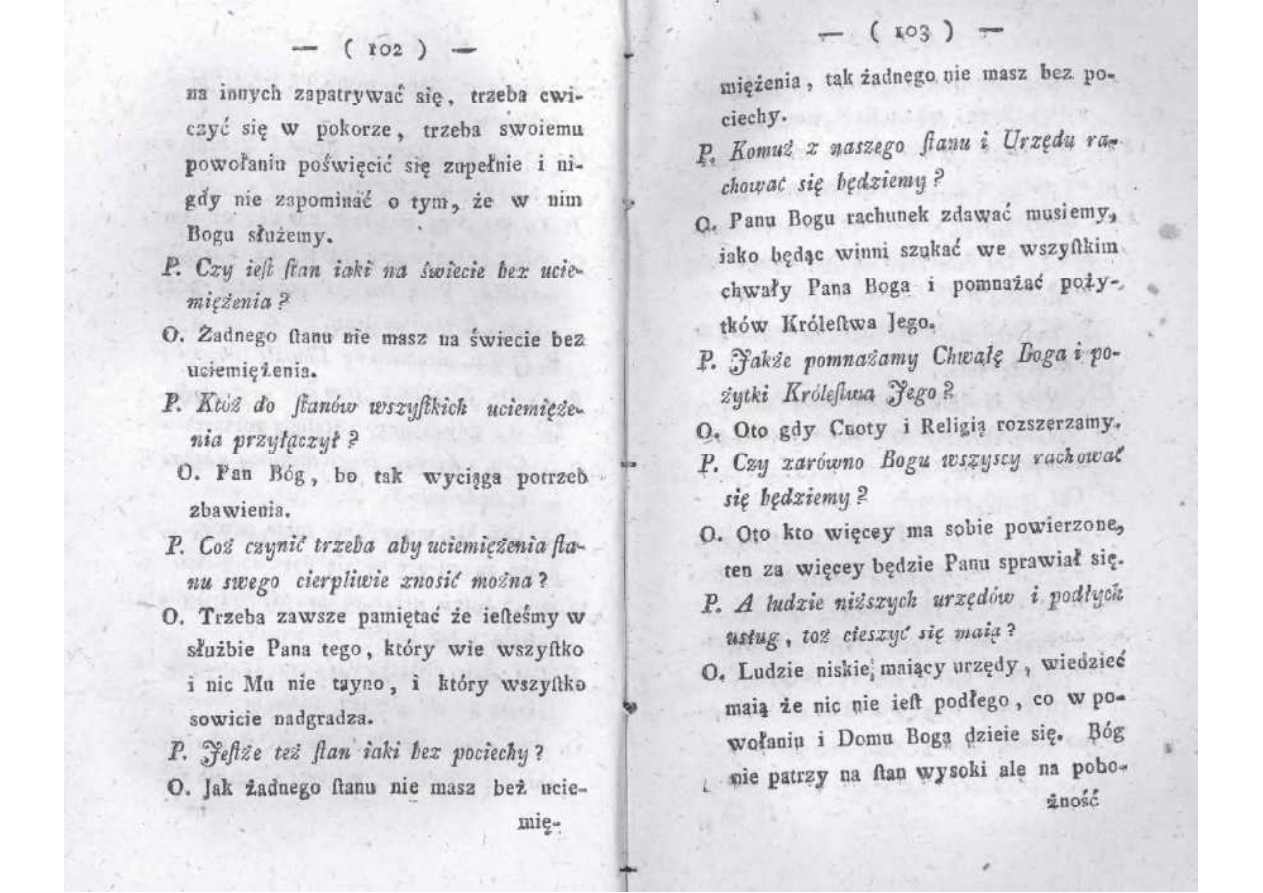 — ( 102 ) —
na innych zapatrywać się, trzeba cwi-
czyć się w pokorze, trzeba swoiemu
powołaniu poświęcić się zupełnie i ni-
gdy nie zapominać o tym, że w nim
Bogu służemy.
P. Czy ieſt ſtan iaki na świecie bez ucie-
miężenia ?
O. Żadnego ſtanu nie masz na świecie bez
uciemiężenia.
P. Któż do ſtanów wszyſtkich uciemięże-
nia przyłączył ?
O. Pan Bóg, bo tak wyciąga potrzeb
zbawienia.
P. Coż czynić trzeba aby uciemiężenia ſta-
nu swego cierpliwie znosić można ?
O. Trzeba zawsze pamiętać że ieſteśmy w
służbie Pana tego, który wie wszyſtko
i nic Mu nie tayno, i który wszyſtko
sowicie nadgradza.
P. Jeſtże też ſtan iaki bez pociechy ?
O. Jak żadnego ſtanu nie masz beż ucie-
mię-
— ( 103 ) —
miężenia, tak żadnego nie masz bez po-
ciechy.
P. Komuż z naszego ſtanu i Urzędu ra-
chować się będziemy ?
O. Panu Bogu rachunek zdawać musiemy,
iako będąc winni szukać we wszyſtkim
chwały Pana Boga i pomnażać poży-
tków Króleſtwa Jego.
P. Jakże pomnażamy Chwałę Boga i po-
żytki Króleſtwa Jego ?
O. Oto gdy Cnoty i Religią rozszerzamy.
P. Czy zarówno Bogu wszyscy rachować
się będziemy ?
O. Oto kto więcey ma sobie powierzone,
ten za więcey będzie Panu sprawiał się.
P. A ludzie niższych urzędów i podłych
usług, toż cieszyć się maią ?
O. Ludzie niskie maiący urzędy, wiedzieć
maią że nic nie ieſt podłego, co w po-
wołaniu i Domu Boga dzieie się. Bóg
nie patrzy na ſtan wysoki ale na pobo-
żność